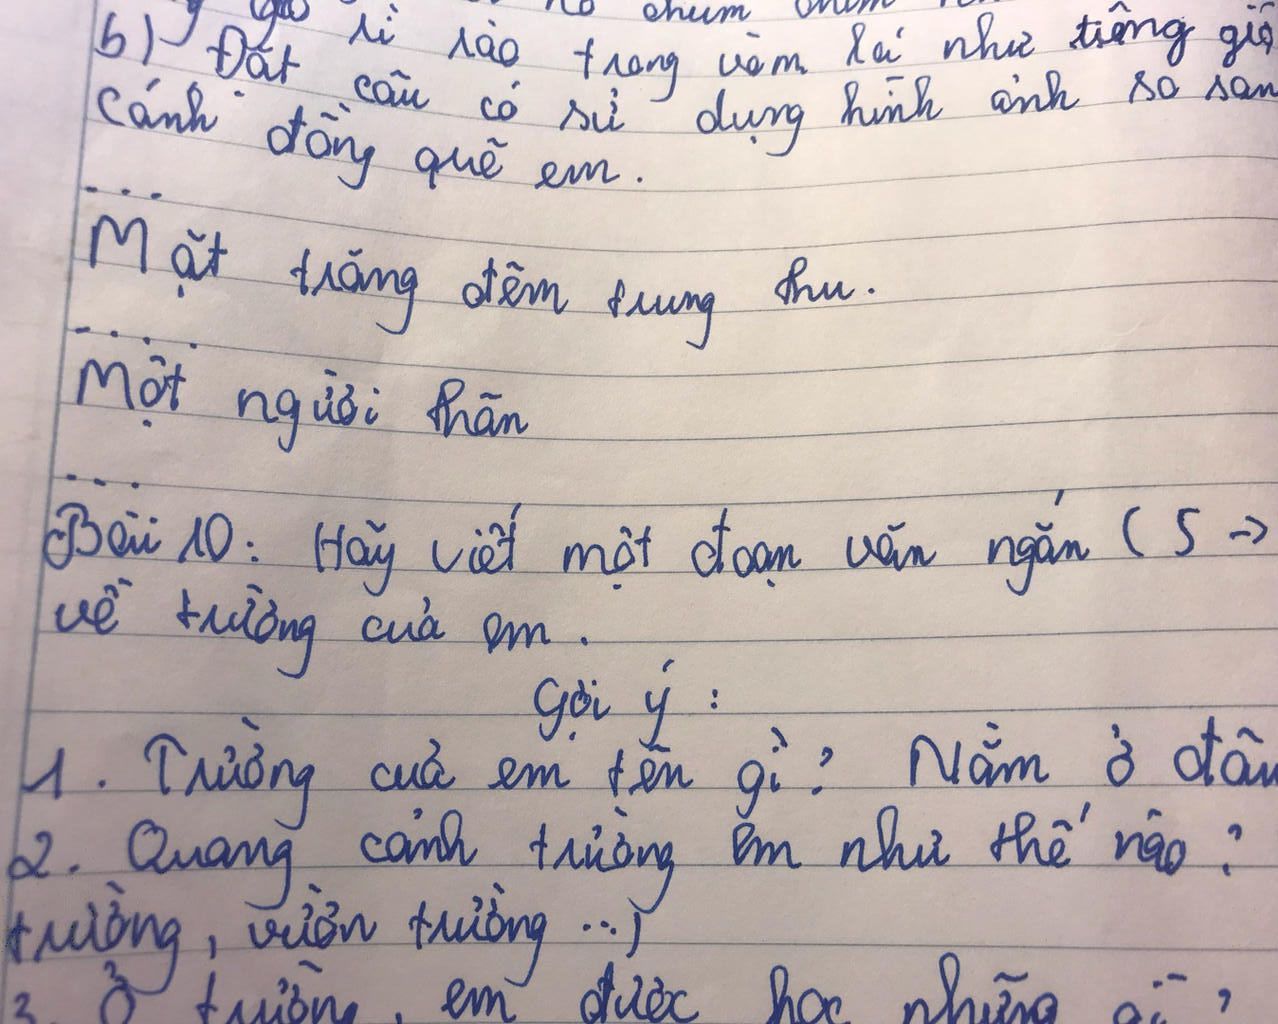 chùm
b) rì rào trong vòm lá như tiếng gió
Đặt câu có sử dụng hình ảnh so sán
cánh đồng quê em.
...
Mặt trăng đêm trung thu.
....
Một người thân
....
Bài 10: Hãy viết một đoạn văn ngắn ( 5 ->
về trường của em.
Gợi ý :
1. Trường của em tên gì? Nằm ở đâu
2. Quang cảnh trường em như thế nào?
trường, vườn trường ...)
3. Ở trường, em được học những gì?